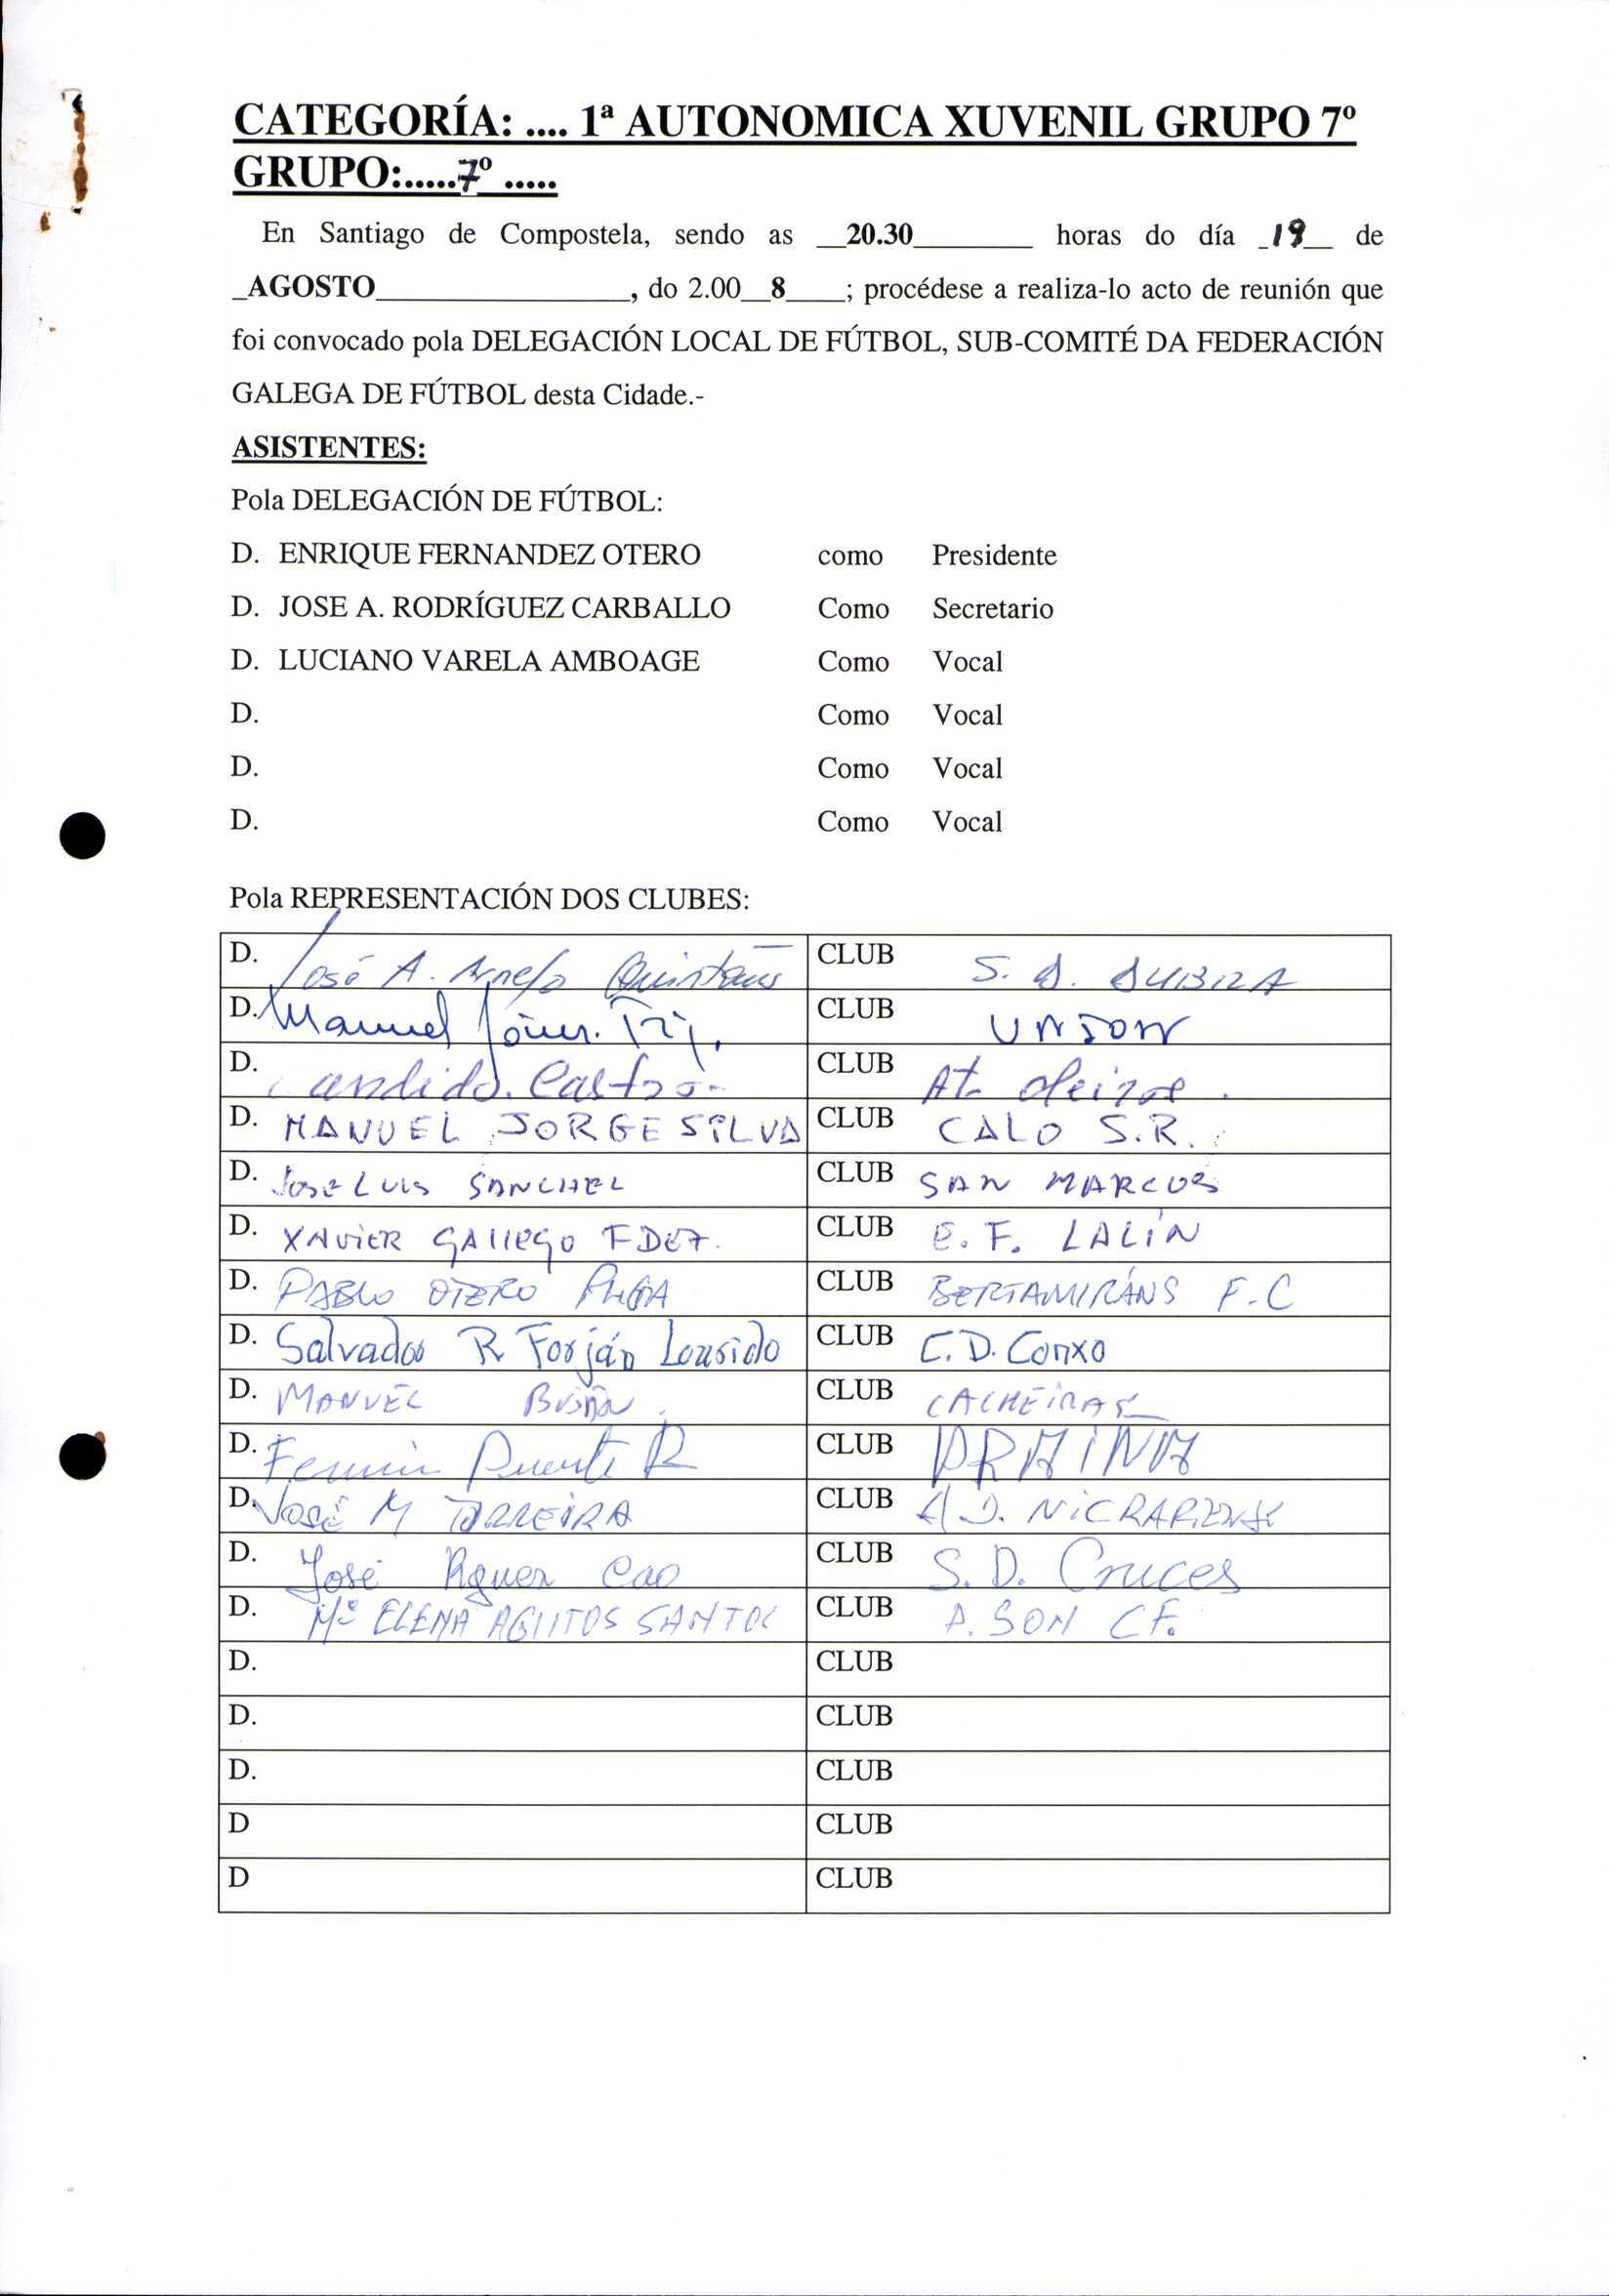 CATEGORÍA: .... 1ª AUTONOMICA XUVENIL GRUPO 7º
GRUPO:.....7º .....
En Santiago de Compostela, sendo as __20.30________ horas do día _19__ de
_AGOSTO_________________, do 2.00__8____; procédese a realiza-lo acto de reunión que
foi convocado pola DELEGACIÓN LOCAL DE FÚTBOL, SUB-COMITÉ DA FEDERACIÓN
GALEGA DE FÚTBOL desta Cidade.-
ASISTENTES:
Pola DELEGACIÓN DE FÚTBOL:
D. ENRIQUE FERNANDEZ OTERO como Presidente
D. JOSE A. RODRÍGUEZ CARBALLO Como Secretario
D. LUCIANO VARELA AMBOAGE Como Vocal
D. Como Vocal
D. Como Vocal
D. Como Vocal
Pola REPRESENTACIÓN DOS CLUBES:
D. José A. CLUB S. D. DUBRA
D. Manuel CLUB UNION
D. Candido. Castro CLUB At.
D. MANUEL JORGE SILVA CLUB CALO S.R.
D. JOSE LUIS SANCHEZ CLUB SAN MARCOS
D. XAVIER GALLEGO FDEZ. CLUB E. F. LALÍN
D. PABLO OTERO CLUB BERTAMIRÁNS F.C
D. Salvador R Forján Lousido CLUB C.D. Conxo
D. MANUEL CLUB CACHEIRAS
D. Fermin Puente R CLUB PRAIÑA
D. José M CLUB
D. José Cao CLUB S. D. Cruces
D. Mª ELENA SANTOS CLUB SON CF.
D. CLUB
D. CLUB
D. CLUB
D CLUB
D CLUB